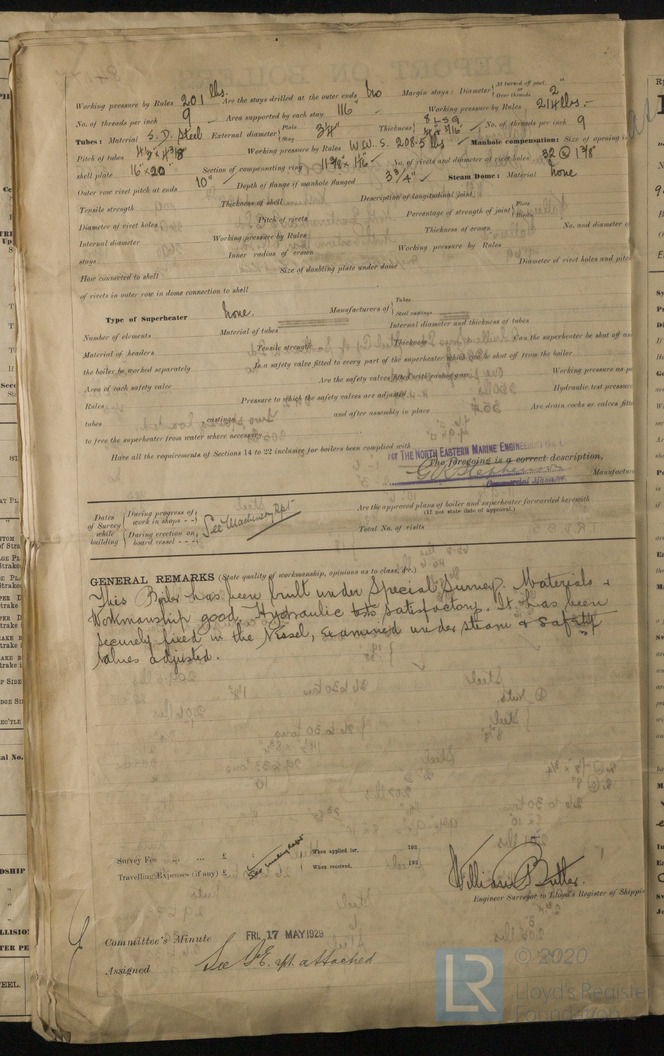 Working pressure by Rules 201 lbs. Are the stays drilled at the outer ends No Margin stays: Diameter { At turned off part, or Over threads 2"
No. of threads per inch 9 Area supported by each stay 116" Working pressure by Rules 214 lbs.
Tubes: Material S.D. Steel External diameter { Plain Stay 3¼" Thickness { 8 LSG 5/16" No. of threads per inch 9
Pitch of tubes 4½" x 4⅜" Working pressure by Rules W.W.S. 208.5 lbs Manhole compensation: Size of opening in
shell plate 16" x 20" Section of compensating ring No. of rivets and diameter of rivet holes 32 @ 1⅜"
Outer row rivet pitch at ends 10" Depth of flange if manhole flanged 3¾" Steam Dome: Material None
Tensile strength Thickness of shell Description of longitudinal joint
Diameter of rivet holes Pitch of rivets Percentage of strength of joint { Plate Rivets
Internal diameter Working pressure by Rules Thickness of crown No. and diameter of
stays Inner radius of crown Working pressure by Rules
How connected to shell Size of doubling plate under dome Diameter of rivet holes and pitch
of rivets in outer row in dome connection to shell
Type of Superheater None. Manufacturers of { Tubes Steel castings
Number of elements Material of tubes Internal diameter and thickness of tubes
Material of headers Tensile strength Thickness Can the superheater be shut off and
the boiler be worked separately Is a safety valve fitted to every part of the superheater which can be shut off from the boiler
Area of each safety valve Are the safety valves fitted with easing gear Working pressure as per
Rules Pressure to which the safety valves are adjusted Hydraulic test pressure
tubes castings and after assembly in place Are drain cocks or valves fitted
to free the superheater from water where necessary
Have all the requirements of Sections 14 to 22 inclusive for boilers been complied with
For THE NORTH EASTERN MARINE ENGINEERING
The foregoing is a correct description,
Manufacturer
Commercial Manager.
Dates of Survey while building { During progress of work in shops - - During erection on board vessel - - - See Machinery Rpt Are the approved plans of boiler and superheater forwarded herewith
(If not state date of approval.)
Total No. of visits
GENERAL REMARKS (State quality of workmanship, opinions as to class, &c.)
This Boiler has been built under Special Survey. Materials &
Workmanship good. Hydraulic tests satisfactory. It has been
securely fixed in the Vessel, examined under steam & safety
valves adjusted.
Survey Fee ... ... £ See Machinery Report When applied for, 192
Travelling Expenses (if any) £ When received, 192
William Butler.
Engineer Surveyor to Lloyd's Register of Shipping
Committee's Minute FRI. 17 MAY 1929
Assigned See F.E. rpt. attached
LR
© 2020
Lloyd's Register
Foundation